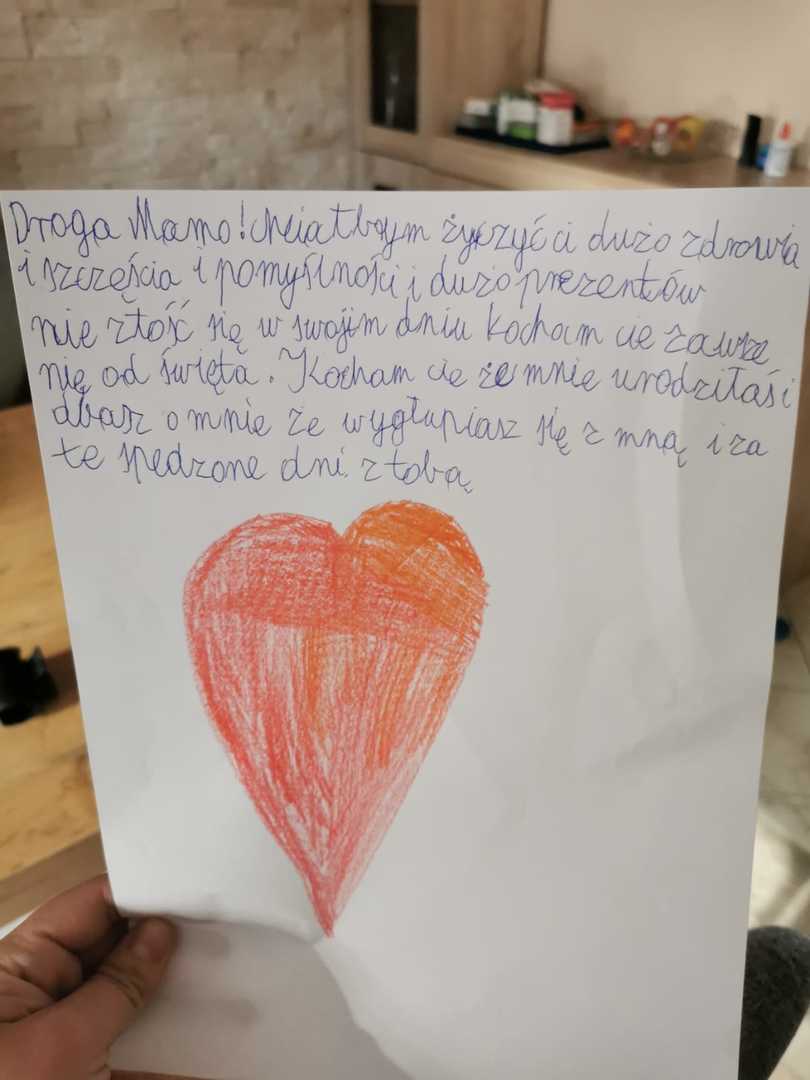 Droga Mamo! chciałbym życzyć ci dużo zdrowia
i szczęścia i pomyślności i dużo prezentów
nie złość się w swojim dniu kocham cie zawsze
nię od święta. Kocham cie że mnie urodziłaś i
dbasz o mnie że wygłupiasz się z mną i za
te spedzone dni z tobą